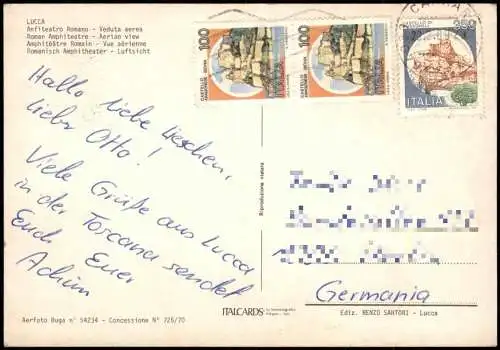 LUCCA
Anfiteatro Romano - Veduta aerea
Roman Amphiteatre - Aerian view
Amphithéâtre Romain - Vue aérienne
Romanisch Amphitheater - Luftsicht
100
100
ITALIA
Hallo liebe Lieschen,
lieber Otto!
Viele Grüße aus Lucca
in der Toscana sendet
Euch Euer
Achim
Riproduzione vietata
Germania
ITALCARDS
Aerfoto Buga n° 54234 - Concessione N° 726/70
Ediz. RENZO SANTORI - Lucca